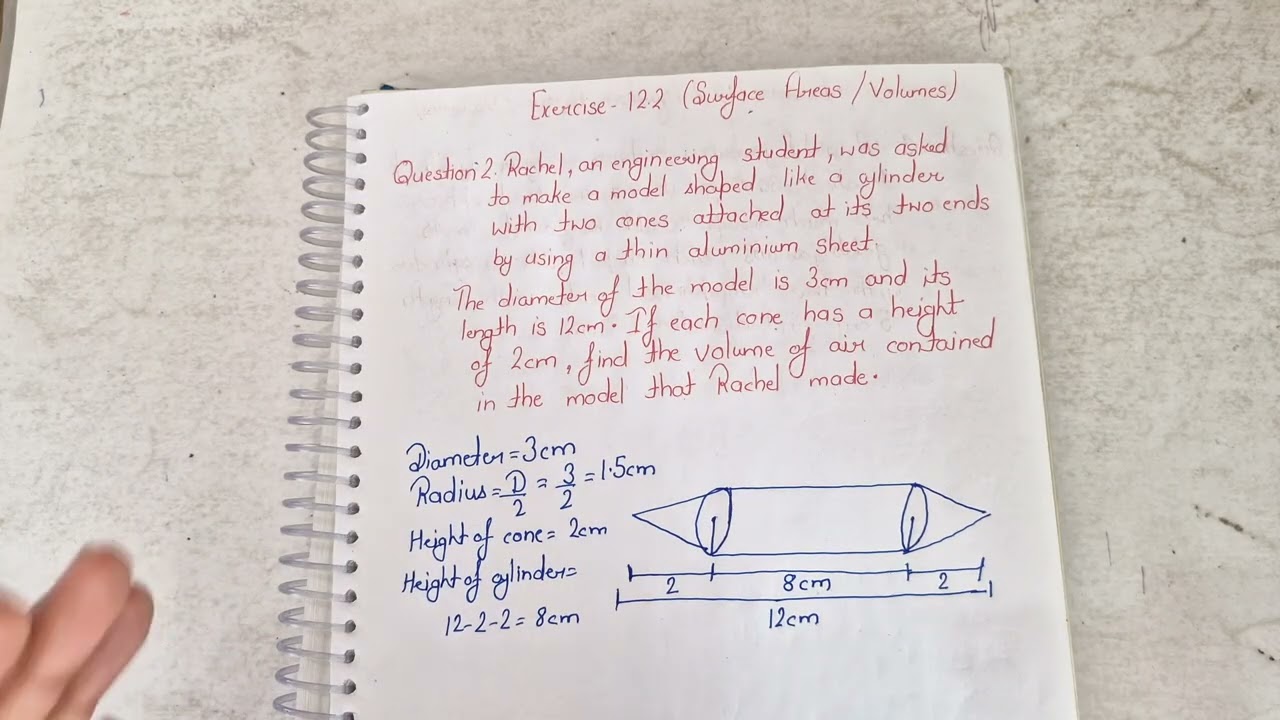 Exercise - 12.2 (Surface Areas / Volumes)
Question 2. Rachel, an engineering student, was asked
to make a model shaped like a cylinder
with two cones attached at its two ends
by using a thin aluminium sheet.
The diameter of the model is 3cm and its
length is 12cm. If each cone has a height
of 2cm, find the volume of air contained
in the model that Rachel made.
Diameter = 3cm
Radius = D/2 = 3/2 = 1.5cm
Height of cone = 2cm
Height of cylinder =
12-2-2 = 8cm
2 8cm 2
12cm